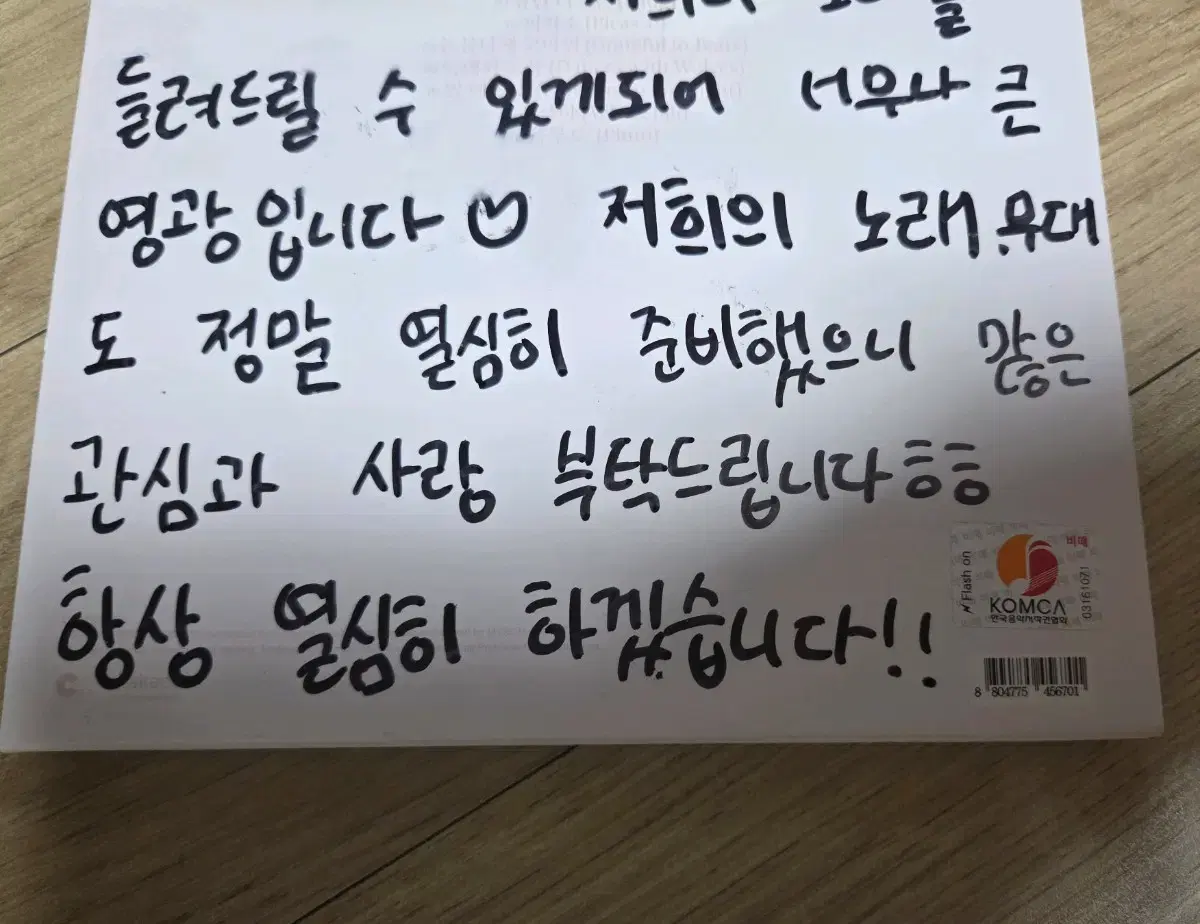 들려드릴 수 있게되어 너무나 큰
영광입니다 저희의 노래, 무대
도 정말 열심히 준비했으니 많은
관심과 사랑 부탁드립니다ㅎㅎ
항상 열심히 하겠습니다!!
비매
Flash on
KOMCA
한국음악저작권협회
03161071
8 804775 456701